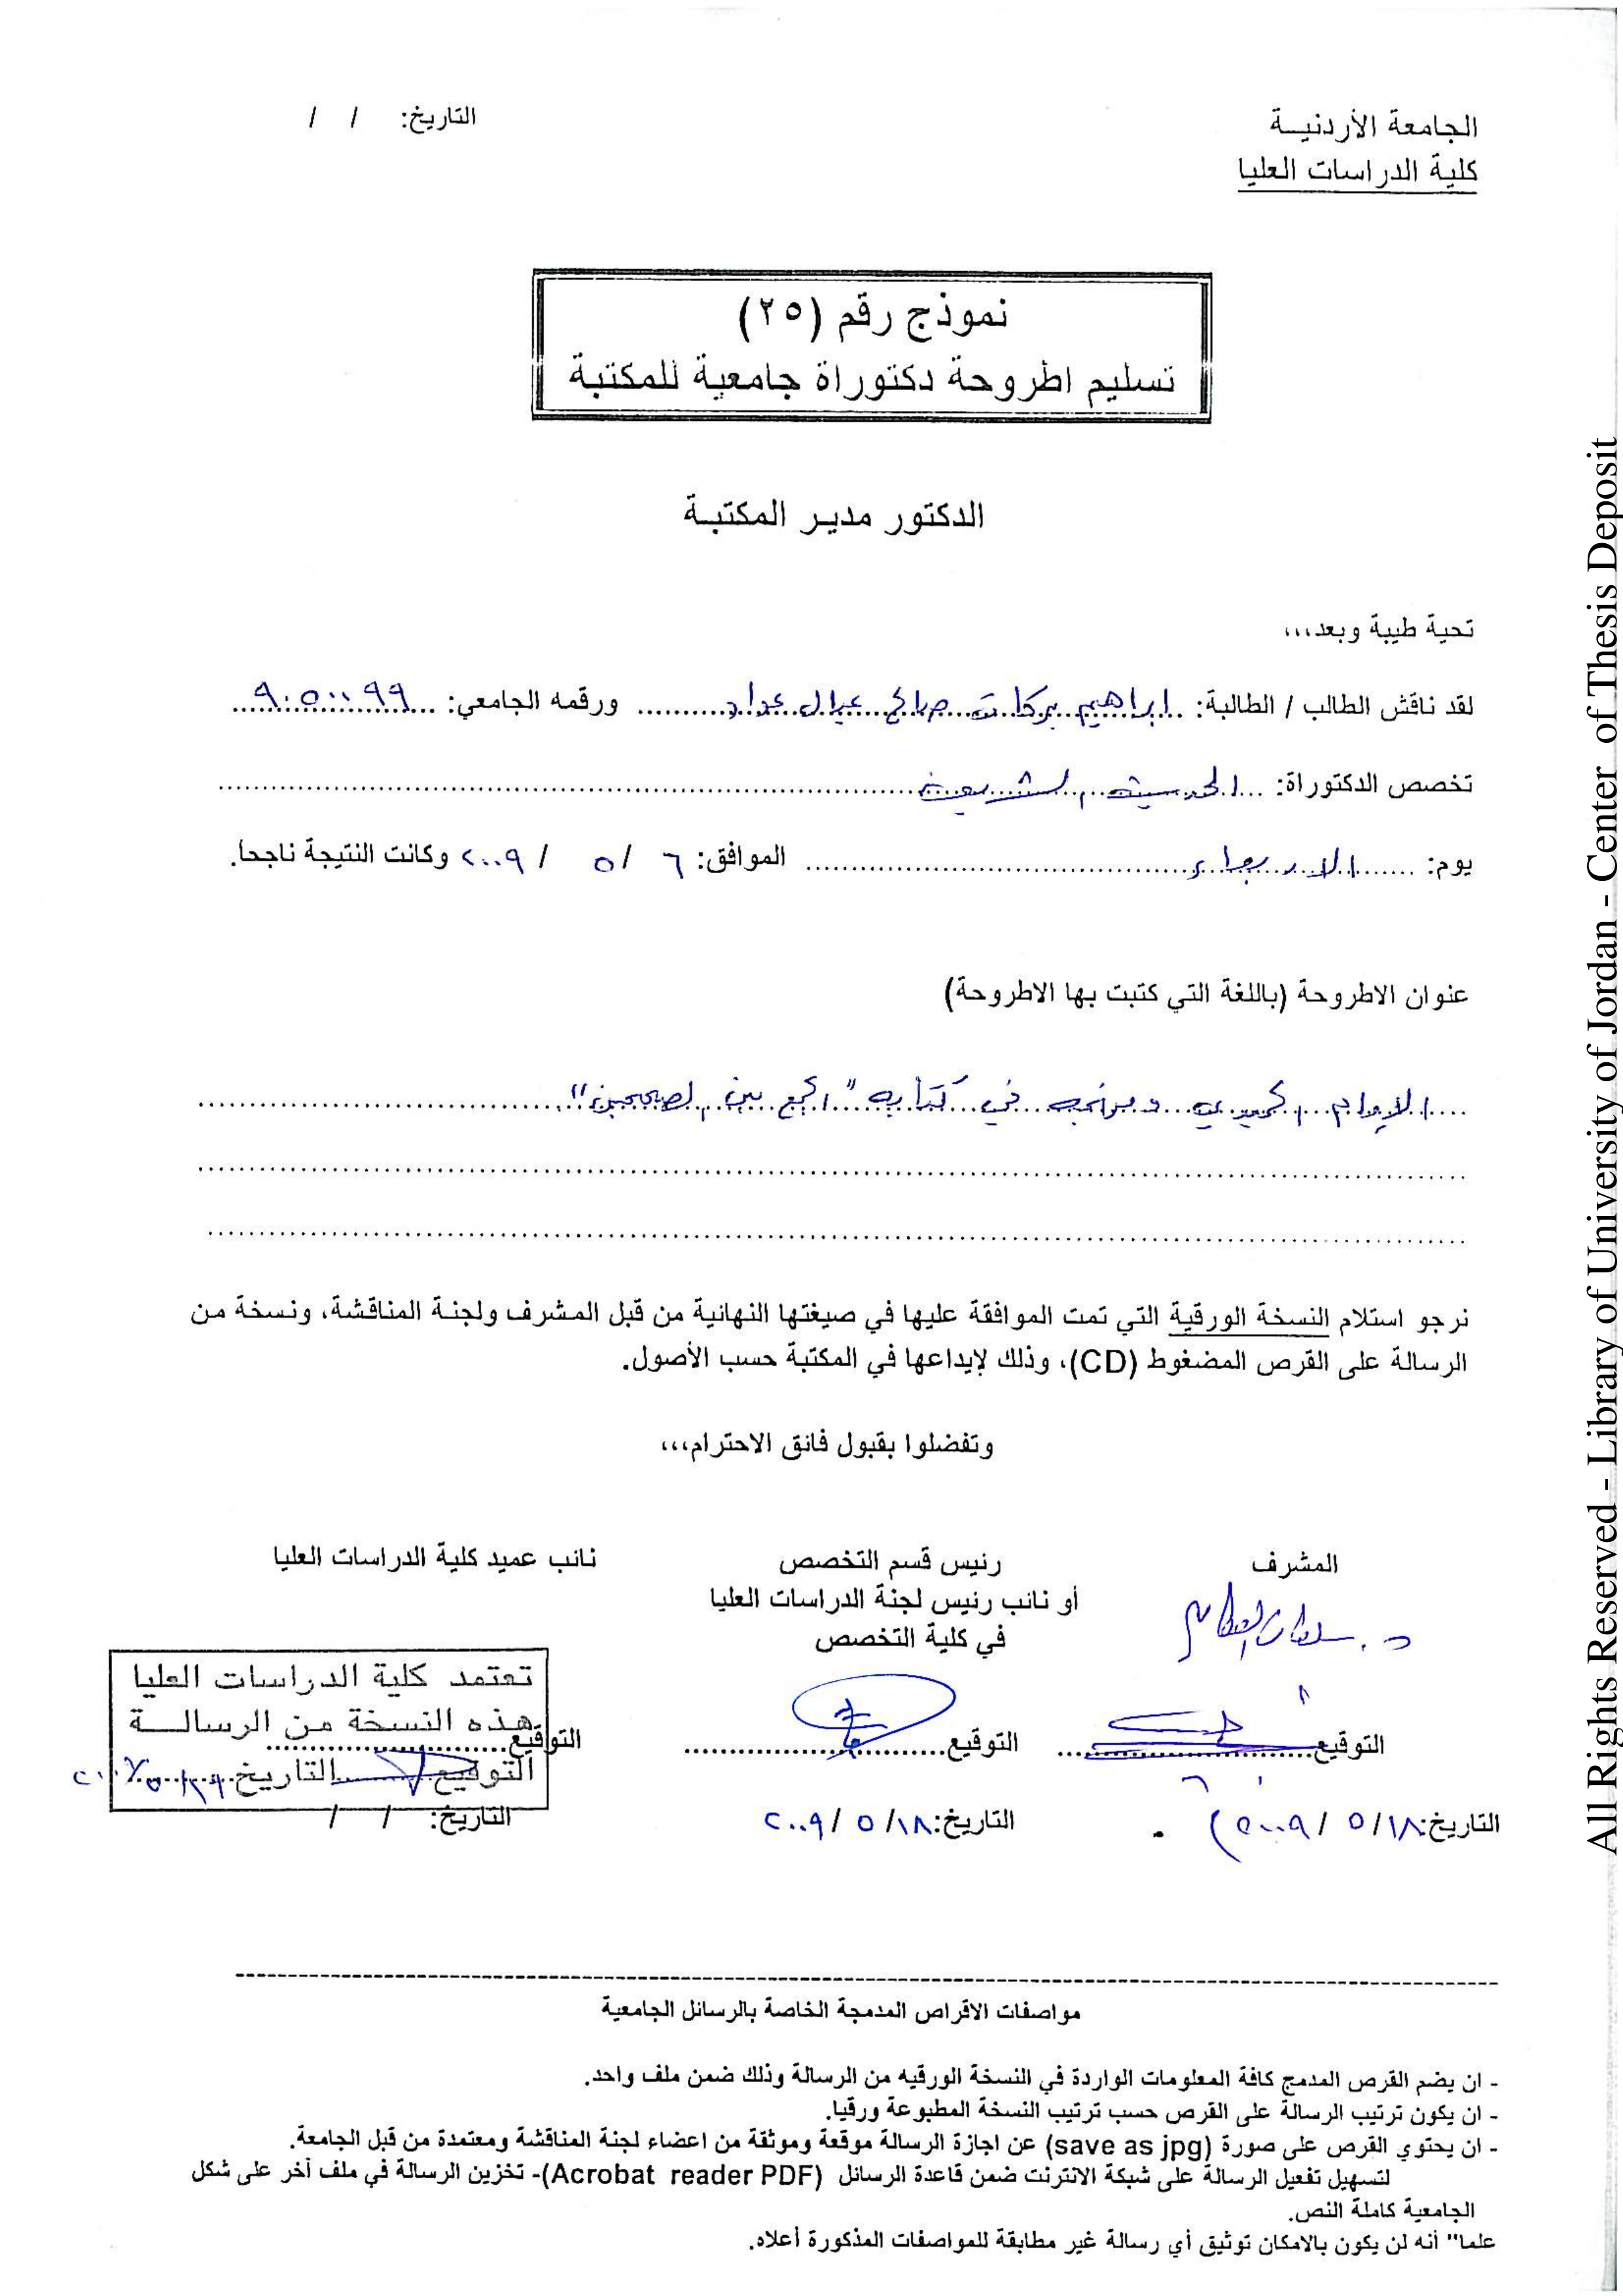 الجامعة الأردنيـة
كلية الدراسات العليا
التاريخ: / /
نموذج رقم (٢٥)
تسليم اطروحة دكتوراة جامعية للمكتبة
الدكتور مديـر المكتبـة
تحية طيبة وبعد،،،
لقد ناقش الطالب / الطالبة: ابراهيم بركات صالح عيال عواد ورقمه الجامعي: ٩٠٥٠٠٩٩
تخصص الدكتوراة: الحديث الشريف
يوم: الاربعاء الموافق: ٦ / ٥ / ٢٠٠٩ وكانت النتيجة ناجحا.
عنوان الاطروحة (باللغة التي كتبت بها الاطروحة)
الامام الحميدي ومنهجه في كتابه "الجمع بين الصحيحين"
نرجو استلام النسخة الورقية التي تمت الموافقة عليها في صيغتها النهائية من قبل المشرف ولجنة المناقشة، ونسخة من
الرسالة على القرص المضغوط (CD)، وذلك لإيداعها في المكتبة حسب الأصول.
وتفضلوا بقبول فائق الاحترام،،،
المشرف
رئيس قسم التخصص
أو نائب رئيس لجنة الدراسات العليا
في كلية التخصص
نائب عميد كلية الدراسات العليا
د. سلطان العكايلة
تعتمد كلية الدراسات العليا
هذه النسخة من الرسالـــة
التوقيع التاريخ
التوقيع
التوقيع
التوقيع
التاريخ: ١٨/ ٥ / ٢٠٠٩
التاريخ: ١٨/ ٥ / ٢٠٠٩
التاريخ: / /
مواصفات الاقراص المدمجة الخاصة بالرسائل الجامعية
- ان يضم القرص المدمج كافة المعلومات الواردة في النسخة الورقيه من الرسالة وذلك ضمن ملف واحد.
- ان يكون ترتيب الرسالة على القرص حسب ترتيب النسخة المطبوعة ورقيا.
- ان يحتوي القرص على صورة (save as jpg) عن اجازة الرسالة موقعة وموثقة من اعضاء لجنة المناقشة ومعتمدة من قبل الجامعة.
لتسهيل تفعيل الرسالة على شبكة الانترنت ضمن قاعدة الرسائل (Acrobat reader PDF)- تخزين الرسالة في ملف آخر على شكل
الجامعية كاملة النص.
علما" أنه لن يكون بالامكان توثيق أي رسالة غير مطابقة للمواصفات المذكورة أعلاه.
All Rights Reserved - Library of University of Jordan - Center of Thesis Deposit